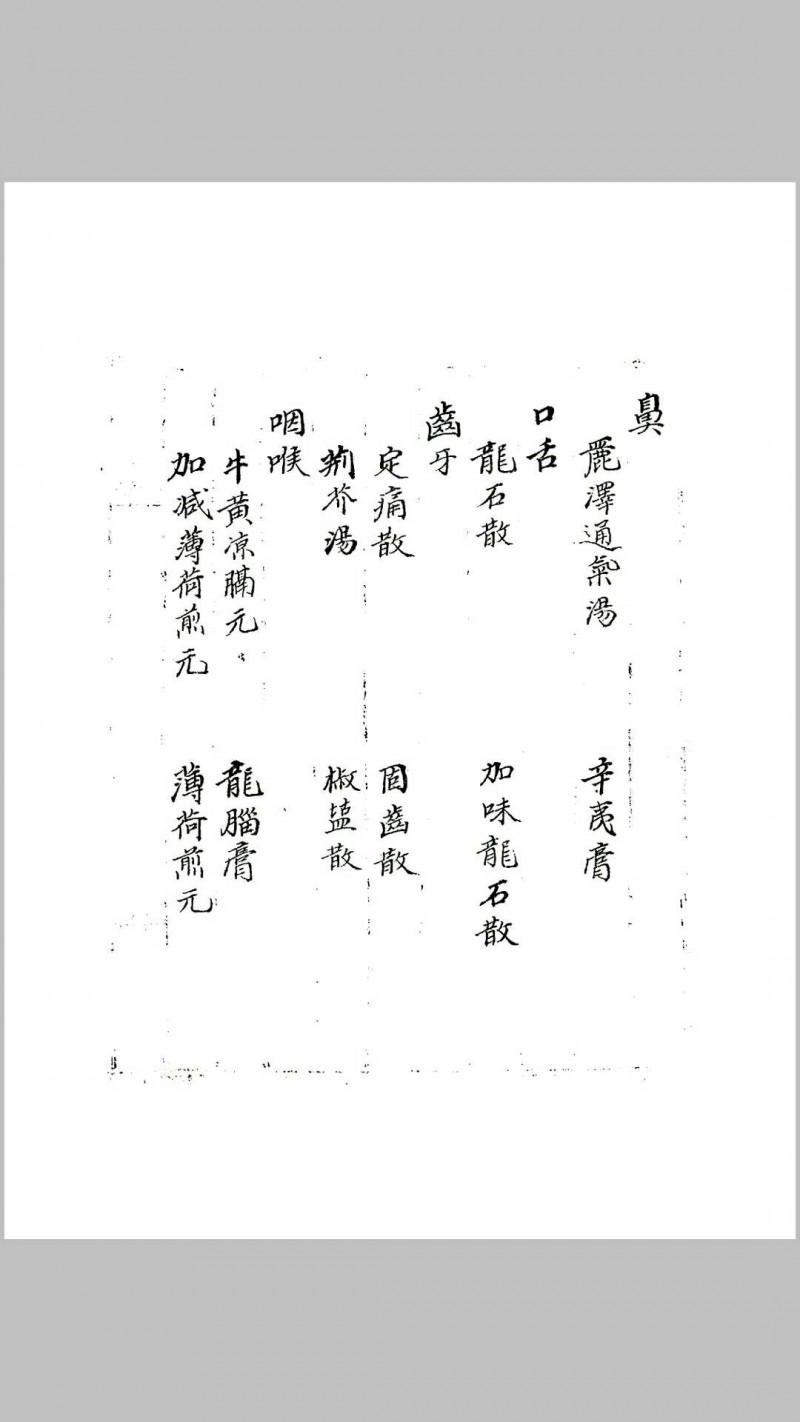 鼻
麗澤通氣湯 辛夷膏
口舌
龍石散 加味龍石散
齒牙
定痛散 固齒散
荊芥湯 椒塩散
咽喉
牛黃凉膈元 龍腦膏
加减薄荷煎元 薄荷煎元